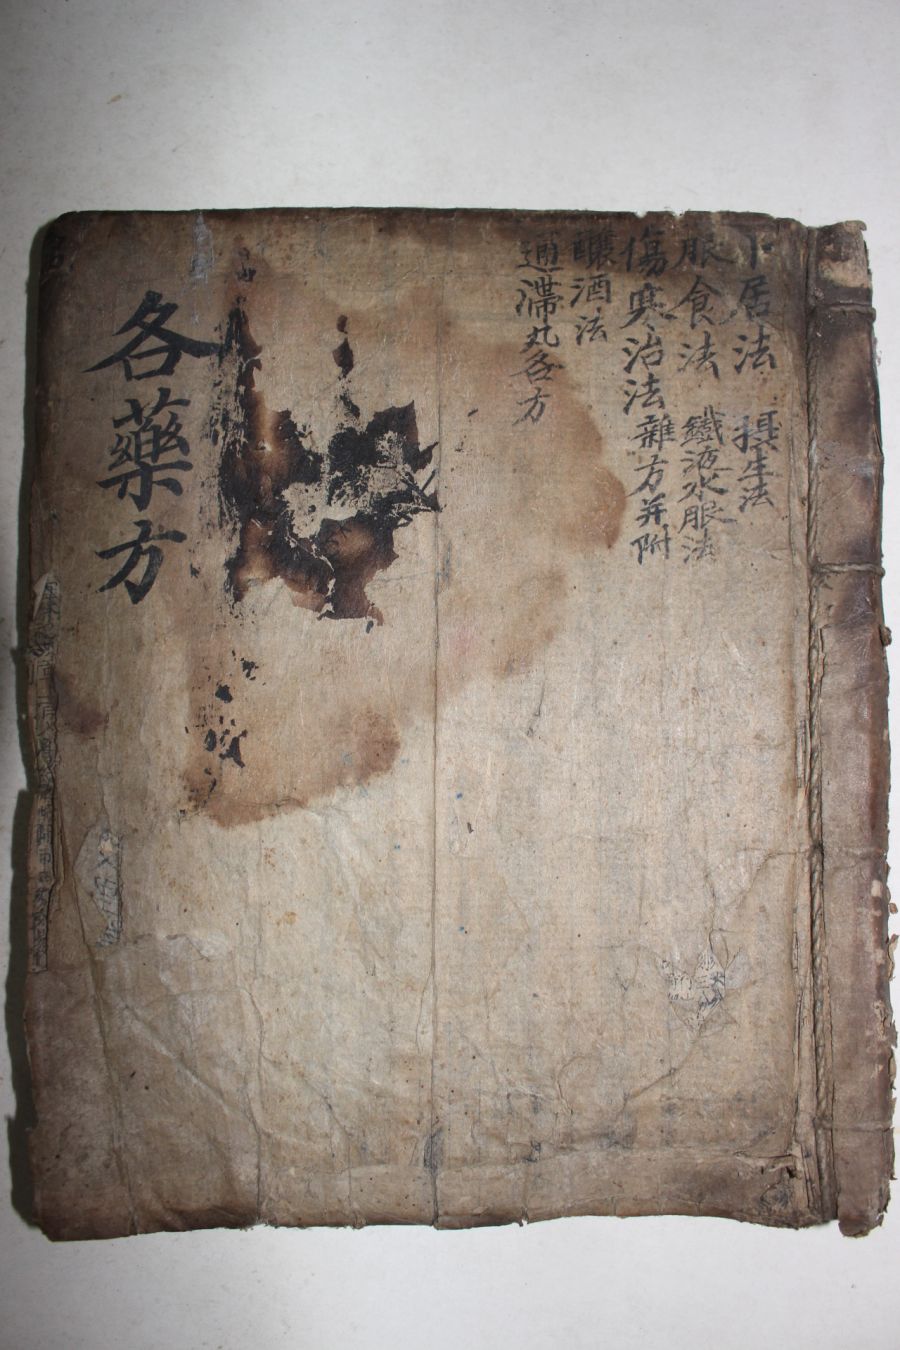 卜居法 摂生法
服食法 鐵液水服法
傷寒治法雜方并附
釀酒法
通滯丸各方
各藥方